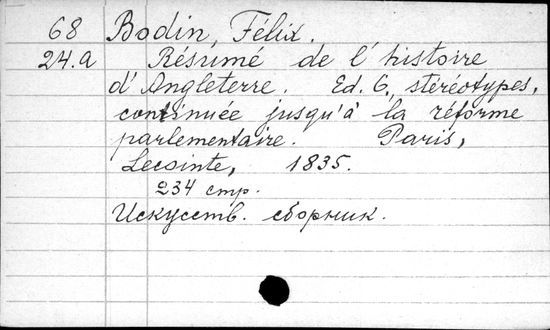 68 Bodin, Félix.
24.a Résumé de l'histoire
d'Angleterre. Ed. 6, stéréotypes,
continuée jusqu'à la réforme
parlementaire. Paris,
Lecointe, 1835.
234 стр.
Искусств. сборник.